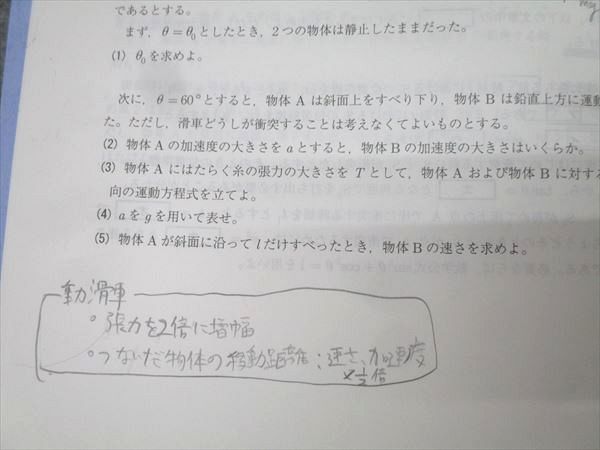 であるとする。
まず，θ＝θ₀としたとき，2つの物体は静止したままだった。
(1) θ₀を求めよ。
次に，θ＝60°とすると，物体 A は斜面上をすべり下り，物体 B は鉛直上方に運動
た。ただし，滑車どうしが衝突することは考えなくてよいものとする。
(2) 物体 A の加速度の大きさを a とすると，物体 B の加速度の大きさはいくらか。
(3) 物体 A にはたらく糸の張力の大きさを T として，物体 A および物体 B に対する
向の運動方程式を立てよ。
(4) a を g を用いて表せ。
(5) 物体 A が斜面に沿って l だけすべったとき，物体 B の速さを求めよ。
動滑車
○張力を2倍に増幅
○つないだ物体の移動距離；速さ、加速度
×1/2倍